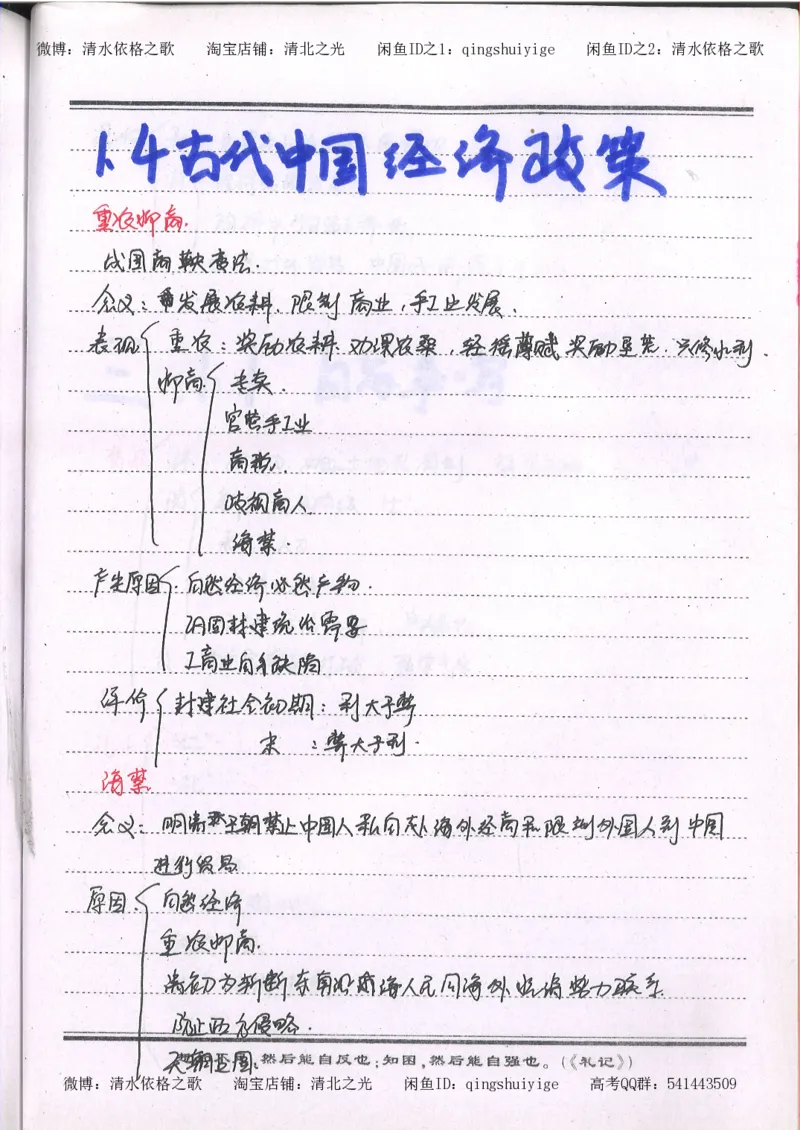 微博：清水依格之歌 淘宝店铺：清北之光 闲鱼ID之1：qingshuiyige 闲鱼ID之2：清水依格之歌
1.4古代中国经济政策
重农抑商.
战国商鞅变法.
含义：重发展农耕. 限制商业,手工业发展.
表现 重农：奖励农耕.劝课农桑,轻徭薄赋 奖励垦荒.兴修水利.
抑商 专卖.
官营手工业
商税.
歧视商人.
海禁.
产生原因 自然经济必然产物.
巩固封建统治需要
工商业自身缺陷
评价 封建社会初期：利大于弊
末：弊大于利.
海禁
含义：明清王朝禁止中国人私自赴海外经商和限制外国人到中国
进行贸易
原因 自然经济
重农抑商.
清初为斩断东南沿海人民同海外抗清势力联系.
防止西方侵略.
天朝上国.
然后能自反也；知困，然后能自强也。（《礼记》）
微博：清水依格之歌 淘宝店铺：清北之光 闲鱼ID：qingshuiyige 高考QQ群：541443509